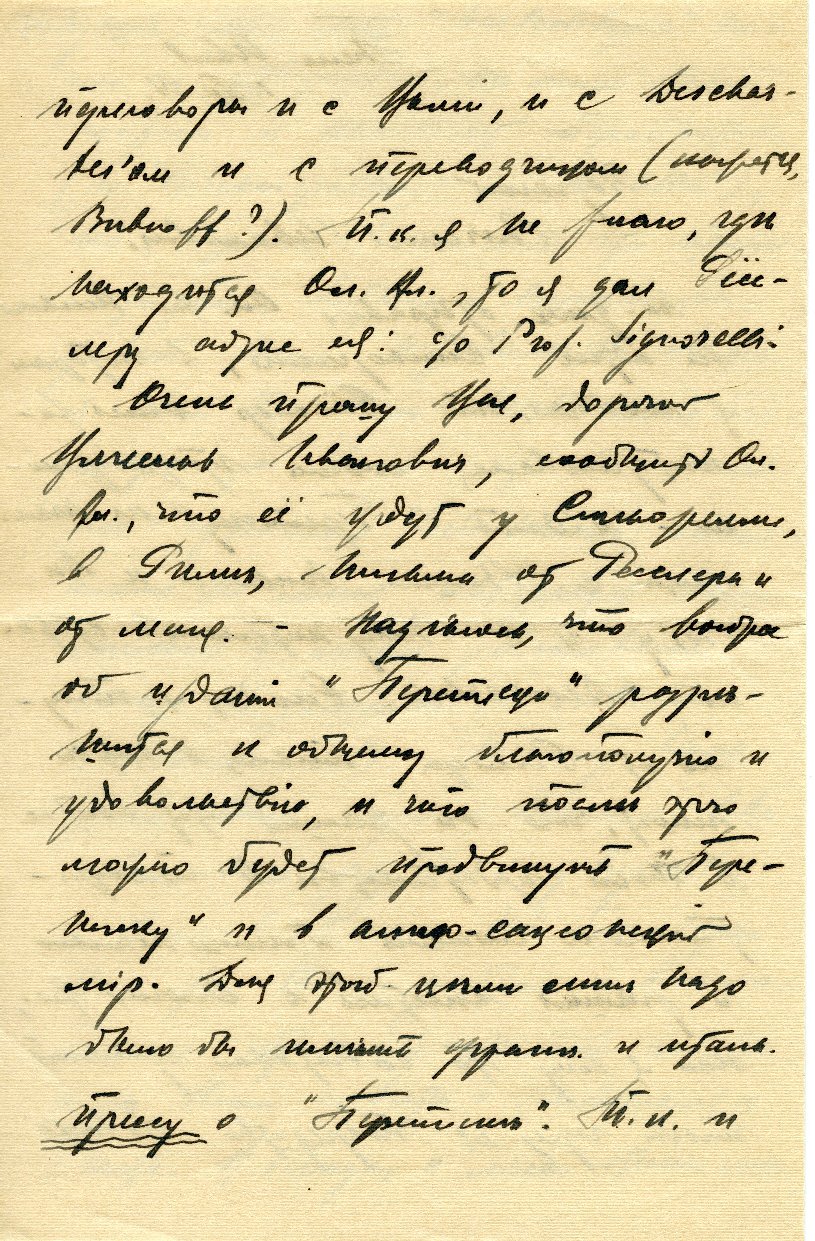 переговоры и с Вами, и с Deschar-
tes'ом и с переводчиком (кажется,
Bubnoff?). Т.к. я не знаю, гдѣ
находится Ол. Ал., то я дал Гесс-
леру адрес ея: c/o Prof. Signorelli.
Очень прошу Вас, дорогой
Вячеслав Иванович, сообщить Ол.
Ал., что её ждут у Синьорелли,
в Римѣ, письма от Гесслера и
от меня. – Надѣюсь, что вопрос
об изданіи "Переписки" разрѣ-
шится к общему благополучію и
удовольствію, и что послѣ этого
можно будет продвинуть "Пере-
писку" и в англо-саксонскій
мір. Для этой цѣли мнѣ надо
было бы имѣть франц. и итальян.
прессу о "Перепискѣ". Т.к. и